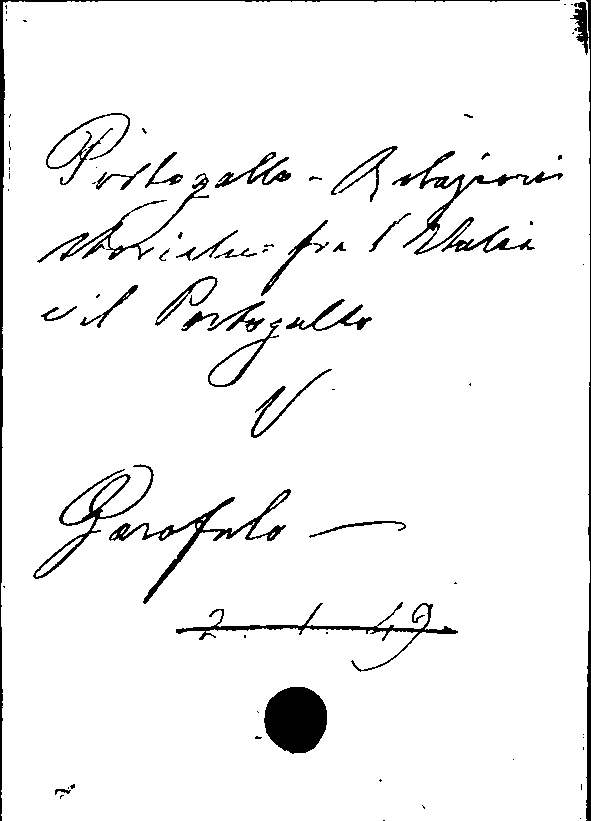 Portogallo - Relazioni
storiche fra l'Italia
e il Portogallo
V
Garofalo —
2. 1. 49.